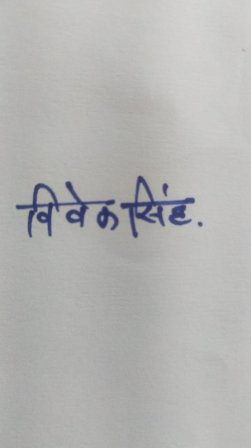 विवेक सिंह.